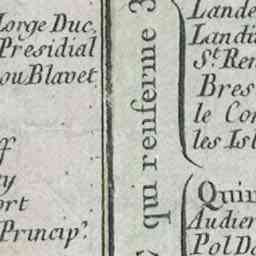 Lorge Duc.
Presidial
ou Blavet
Princip.^t
qui renferme 3
Lande
Landi
S.^t Ren
Bres
le Con
les Isl
Quin
Audier
Pol Da